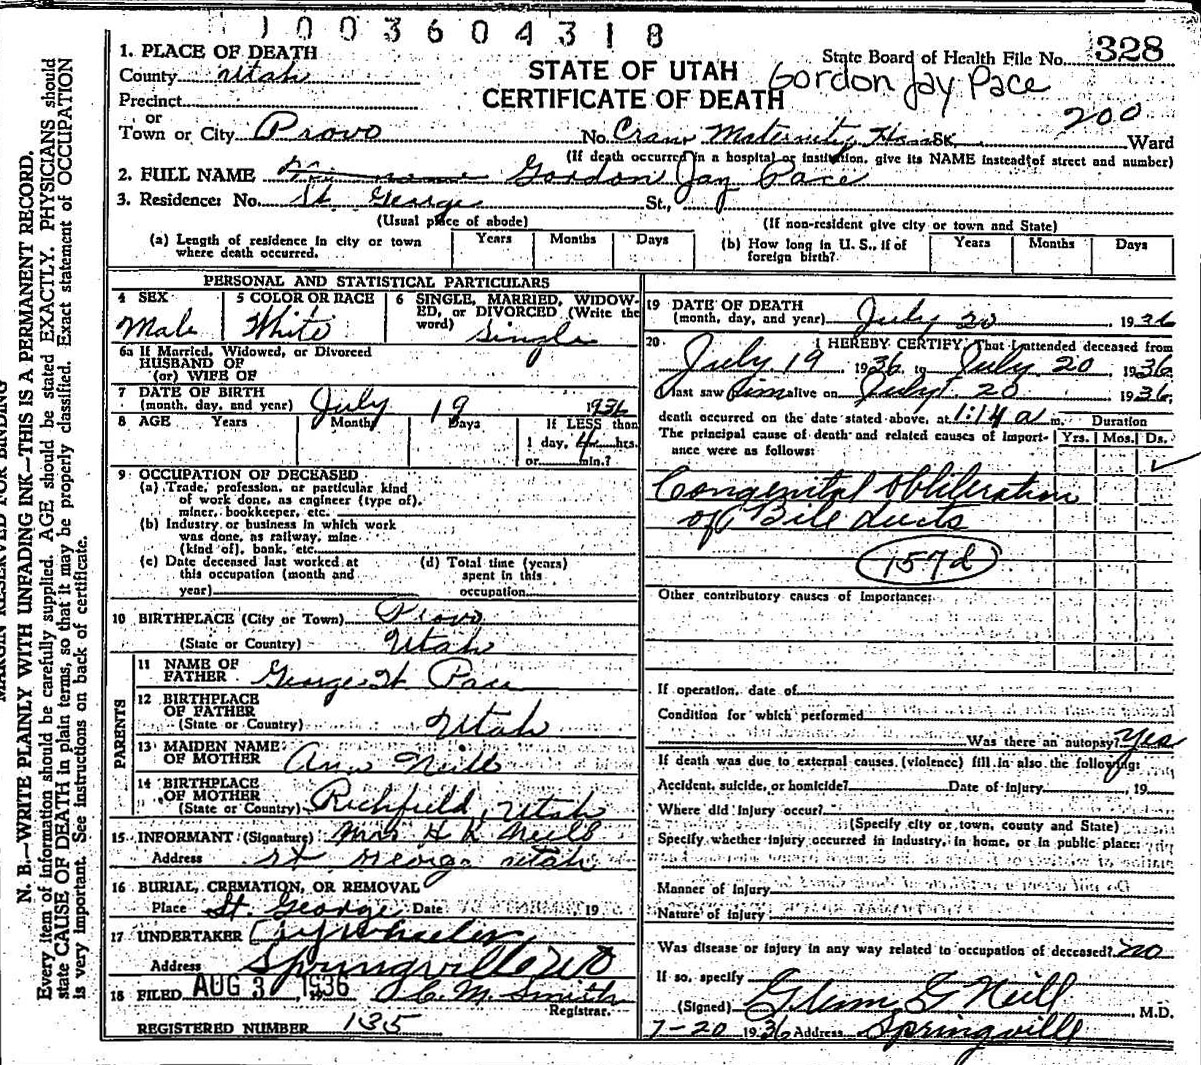 1003604318
State Board of Health File No. 328
1. PLACE OF DEATH
County Utah
STATE OF UTAH
CERTIFICATE OF DEATH
Gordon Jay Pace
Precinct
or
Town or City Provo No. Crane Maternity Hosp St. 200 Ward
(If death occurred in a hospital or institution, give its NAME instead of street and number)
2. FULL NAME Gordon Jay Pace
3. Residence: No. St. George St.,
(Usual place of abode) (If non-resident give city or town and State)
(a) Length of residence in city or town where death occurred. Years Months Days (b) How long in U. S., if of foreign birth? Years Months Days
PERSONAL AND STATISTICAL PARTICULARS
4 SEX Male
5 COLOR OR RACE White
6 SINGLE, MARRIED, WIDOWED, or DIVORCED (Write the word) Single
6a If Married, Widowed, or Divorced
HUSBAND OF
(or) WIFE OF
7 DATE OF BIRTH
(month, day, and year) July 19 1936
8 AGE Years Months Days If LESS than
1 day, 4 hrs.
or min.?
9 OCCUPATION OF DECEASED
(a) Trade, profession, or particular kind
of work done, as engineer (type of),
miner, bookkeeper, etc.
(b) Industry or business in which work
was done, as railway, mine
(kind of), bank, etc.
(c) Date deceased last worked at
this occupation (month and
year)
(d) Total time (years)
spent in this
occupation
10 BIRTHPLACE (City or Town) Provo
(State or Country) Utah
PARENTS
11 NAME OF
FATHER George H. Pace
12 BIRTHPLACE
OF FATHER
(State or Country) Utah
13 MAIDEN NAME
OF MOTHER Ann Neill
14 BIRTHPLACE
OF MOTHER
(State or Country) Richfield, Utah
15 INFORMANT (Signature) Mrs H R Neill
Address St George Utah
16 BURIAL, CREMATION, OR REMOVAL
Place St. George Date 19
17 UNDERTAKER Wheeler
Address Springville
18 FILED AUG 3 1936 C. M. Smith
Registrar.
REGISTERED NUMBER 135
19 DATE OF DEATH
(month, day, and year) July 20, 1936
20 I HEREBY CERTIFY, That I attended deceased from
July 19, 1936 to July 20 1936,
I last saw him alive on July 20 1936,
death occurred on the date stated above, at 1:14 a m. Duration
The principal cause of death and related causes of importance were as follows: Yrs. Mos. Ds.
Congenital Obliteration
of Bile ducts
157d
Other contributory causes of importance:
If operation, date of
Condition for which performed
Was there an autopsy? Yes
If death was due to external causes (violence) fill in also the following:
Accident, suicide, or homicide? Date of injury , 19
Where did injury occur?
(Specify city or town, county and State)
Specify whether injury occurred in industry, in home, or in public place:
Manner of Injury
Nature of Injury
Was disease or injury in any way related to occupation of deceased? no
If so, specify
(Signed) Glenn G Neill, M.D.
7-20 1936 Address Springville
MARGIN RESERVED FOR BINDING
N. B.—WRITE PLAINLY WITH UNFADING INK—THIS IS A PERMANENT RECORD.
Every item of information should be carefully supplied. AGE should be stated EXACTLY. PHYSICIANS should
state CAUSE OF DEATH in plain terms, so that it may be properly classified. Exact statement of OCCUPATION
is very important. See instructions on back of certificate.